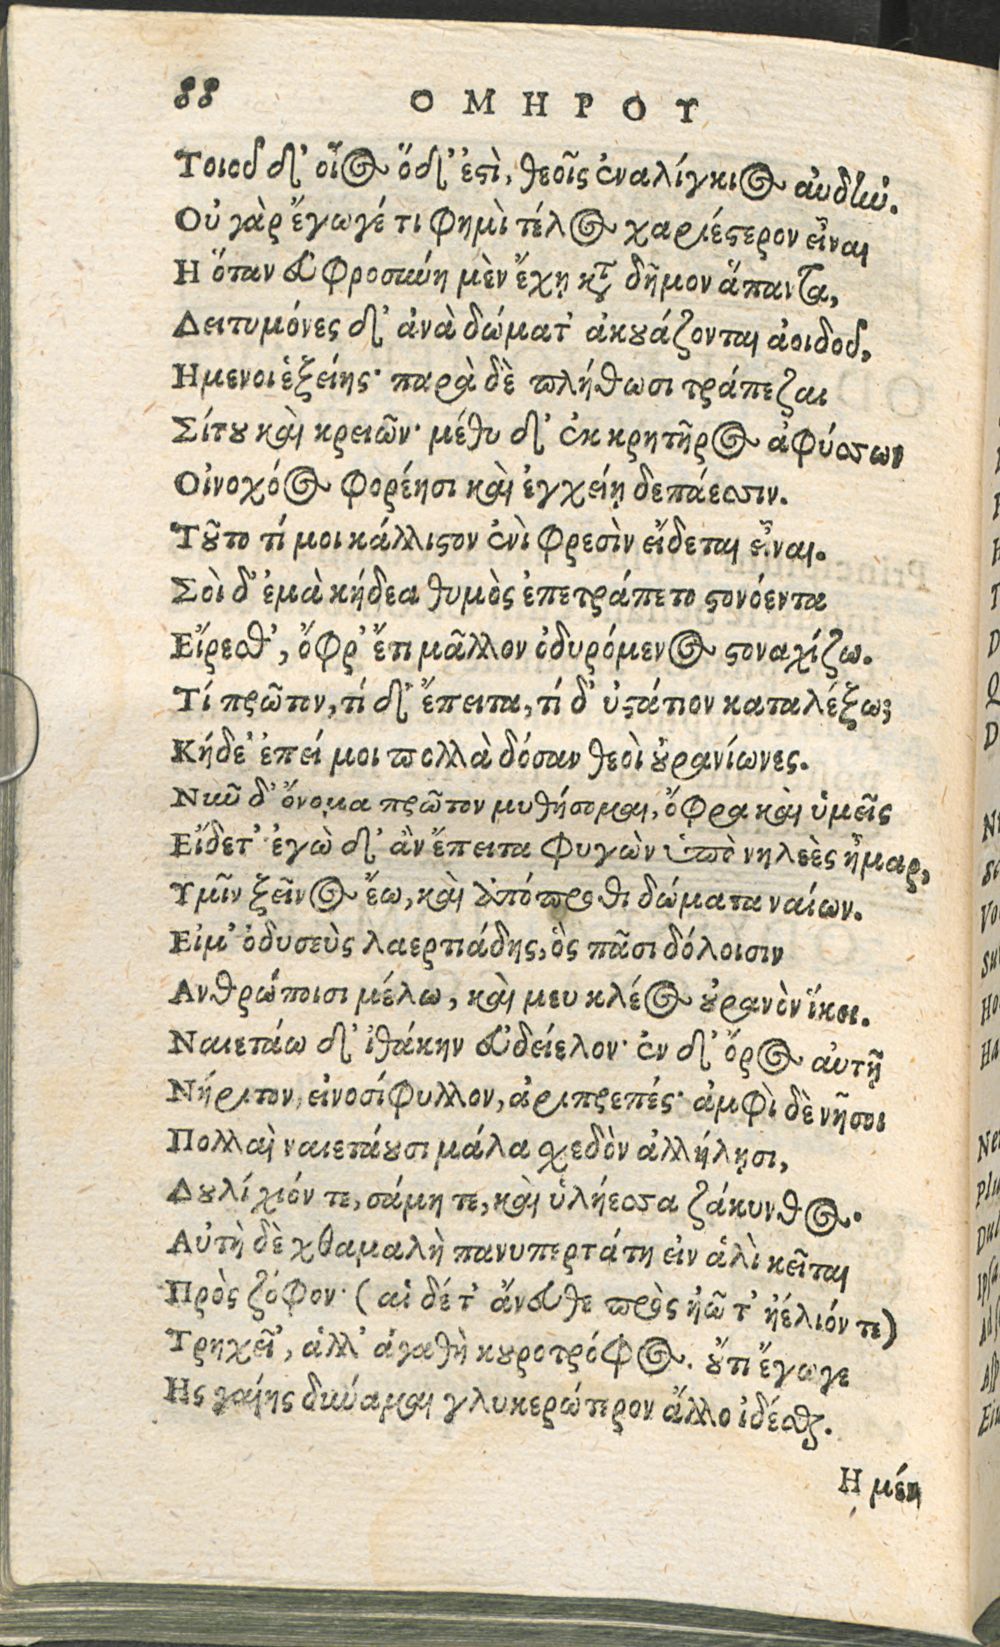 88 ΟΜΗΡΟΥ
Τοιοῦδ᾽ οἷος ὅδ᾽ ἐστὶ, θεοῖς ἐναλίγκιος αὐδήν.
Οὐ γὰρ ἔγωγέ τι φημὶ τέλος χαριέστερον εἶναι
Η ὅταν εὐφροσύνη μὲν ἔχῃ κατὰ δῆμον ἅπαντα,
Δειτυμόνες δ᾽ ἀνὰ δώματ᾽ ἀκουάζονται ἀοιδοῦ,
Ημενοι ἑξείης· παρὰ δὲ πλήθωσι τράπεζαι
Σίτου καὶ κρειῶν· μέθυ δ᾽ ἐκ κρητῆρος ἀφύσσων
Οἰνοχόος φορέησι καὶ ἐγχείῃ δεπάεσσιν.
Τοῦτο τί μοι κάλλιστον ἐνὶ φρεσὶν εἴδεται εἶναι.
Σοὶ δ᾽ ἐμὰ κήδεα θυμὸς ἐπετράπετο στονόεντα
Εἴρεσθ᾽, ὄφρ᾽ ἔτι μᾶλλον ὀδυρόμενος στοναχίζω.
Τί πρῶτον, τί δ᾽ ἔπειτα, τί δ᾽ ὑστάτιον καταλέξω;
Κήδε᾽ ἐπεί μοι πολλὰ δόσαν θεοὶ οὐρανίωνες.
Νῦν δ᾽ ὄνομα πρῶτον μυθήσομαι, ὄφρα καὶ ὑμεῖς
Εἴδετ᾽ ἐγὼ δ᾽ ἂν ἔπειτα φυγὼν ὑπὸ νηλεὲς ἦμαρ,
Υμῖν ξεῖνος ἔω, καὶ ἀπόπροθι δώματα ναίων.
Εἰμ᾽ ὀδυσεὺς λαερτιάδης, ὃς πᾶσι δόλοισιν
Ανθρώποισι μέλω, καὶ μευ κλέος οὐρανὸν ἵκει.
Ναιετάω δ᾽ ἰθάκην εὐδείελον· ἐν δ᾽ ὄρος αὐτῇ
Νήριτον, εἰνοσίφυλλον, ἀριπρεπές· ἀμφὶ δὲ νῆσοι
Πολλαὶ ναιετάουσι μάλα σχεδὸν ἀλλήλῃσι,
Δουλίχιόν τε, σάμη τε, καὶ ὑλήεσσα ζάκυνθος.
Αὐτὴ δὲ χθαμαλὴ πανυπερτάτη εἰν ἁλὶ κεῖται
Πρὸς ζόφον· (αἱ δέ τ᾽ ἄνευθε πρὸς ἠῶ τ᾽ ἠέλιόν τε)
Τρηχεῖ᾽, ἀλλ᾽ ἀγαθὴ κουροτρόφος. οὔτι ἔγωγε
Ης γαίης δύναμαι γλυκερώτερον ἄλλο ἰδέσθαι.
Η μέν